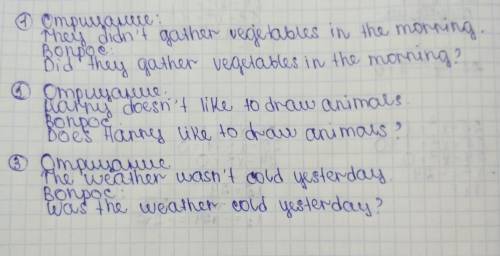 ① Отрицание:
They didn't gather vegetables in the morning.
Вопрос:
Did they gather vegetables in the morning?
② Отрицание.
Harry doesn't like to draw animals.
Вопрос
Does Harry like to draw animals?
③ Отрицание
The weather wasn't cold yesterday.
Вопрос:
Was the weather cold yesterday?